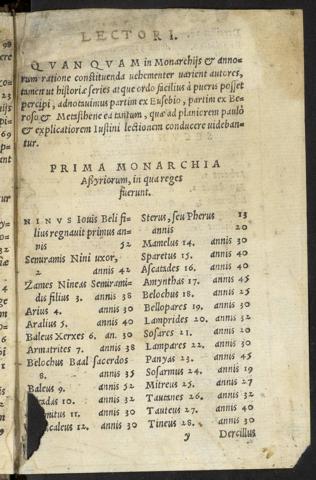 LECTORI.
QVANQVAM in Monarchijs & anno-
rum ratione constituenda uehementer uarient autores,
tamen ut historiæ series atque ordo facilius à pueris posset
percipi, adnotauimus partim ex Eusebio, partim ex Be-
roso & Metasthene ea tantum, quæ ad planiorem paulò
& explicatiorem Iustini lectionem conducere uideban-
tur.
PRIMA MONARCHIA
Aßyriorum, in qua reges
fuerunt.
NINVS Iouis Beli fi-
lius regnauit primus an-
nis 52
Semiramis Nini uxor,
2 annis 42
Zames Nineas Semirami-
dis filius 3. annis 38
Arius 4. annis 30
Aralius 5. annis 40
Baleus Xerxes 6. an. 30
Armatrites 7. annis 38
Belochus Baal sacerdos
8. annis 35
Baleus 9. annis 52
10. annis 32
11. annis 30
12. annis 30
Sterus, seu Pherus 13
annis 20
Mamelus 14. annis 30
Sparetus 15. annis 40
Ascatades 16. annis 40
Amynthas 17. annis 45
Belochus 18. annis 25
Bellopares 19. annis 30
Lamprides 20. annis 32
Sosares 21. annis 20
Lampares 22. annis 30
Panyas 23. annis 45
Sosarmus 24. annis 19
Mitreus 25. annis 27
Tautanes 26. annis 32
Tauteus 27. annis 40
Tineus 28. annis 30
y Dercillus